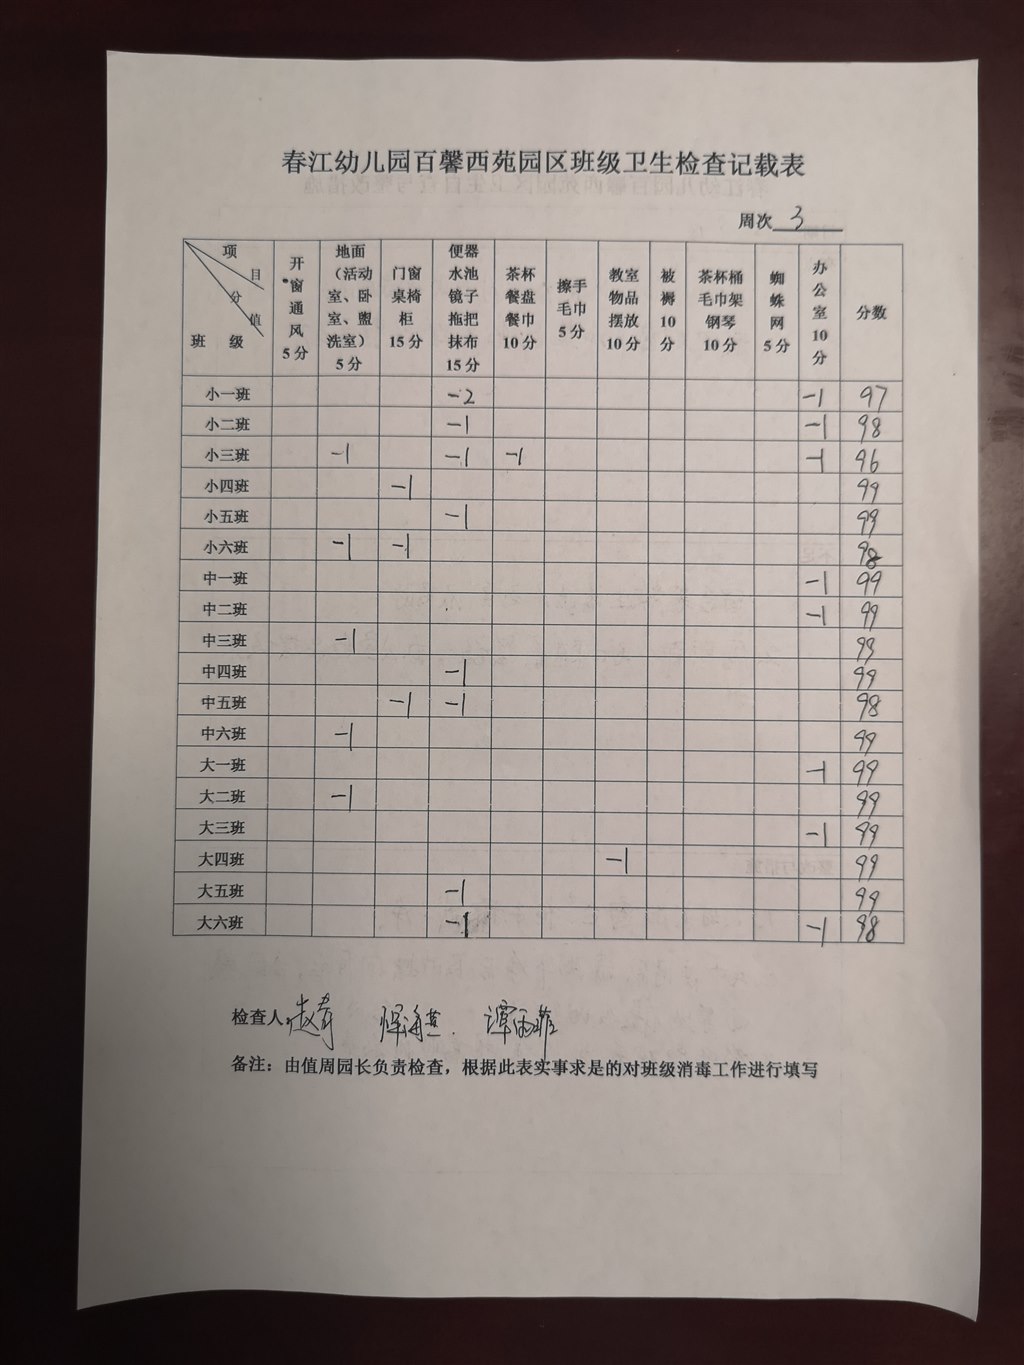 春江幼儿园百馨西苑园区班级卫生检查记载表
周次 3
项目 分值 班级 开窗通风5分 地面（活动室、卧室、盥洗室）5分 门窗桌椅柜15分 便器水池镜子拖把抹布15分 茶杯餐盘餐巾10分 擦手毛巾5分 教室物品摆放10分 被褥10分 茶杯桶毛巾架钢琴10分 蜘蛛网5分 办公室10分 分数
小一班 -2 -1 97
小二班 -1 -1 98
小三班 -1 -1 -1 -1 96
小四班 -1 99
小五班 -1 99
小六班 -1 -1 98
中一班 -1 99
中二班 -1 99
中三班 -1 99
中四班 -1 99
中五班 -1 -1 98
中六班 -1 99
大一班 -1 99
大二班 -1 99
大三班 -1 99
大四班 -1 99
大五班 -1 99
大六班 -1 -1 98
检查人：
备注：由值周园长负责检查，根据此表实事求是的对班级消毒工作进行填写